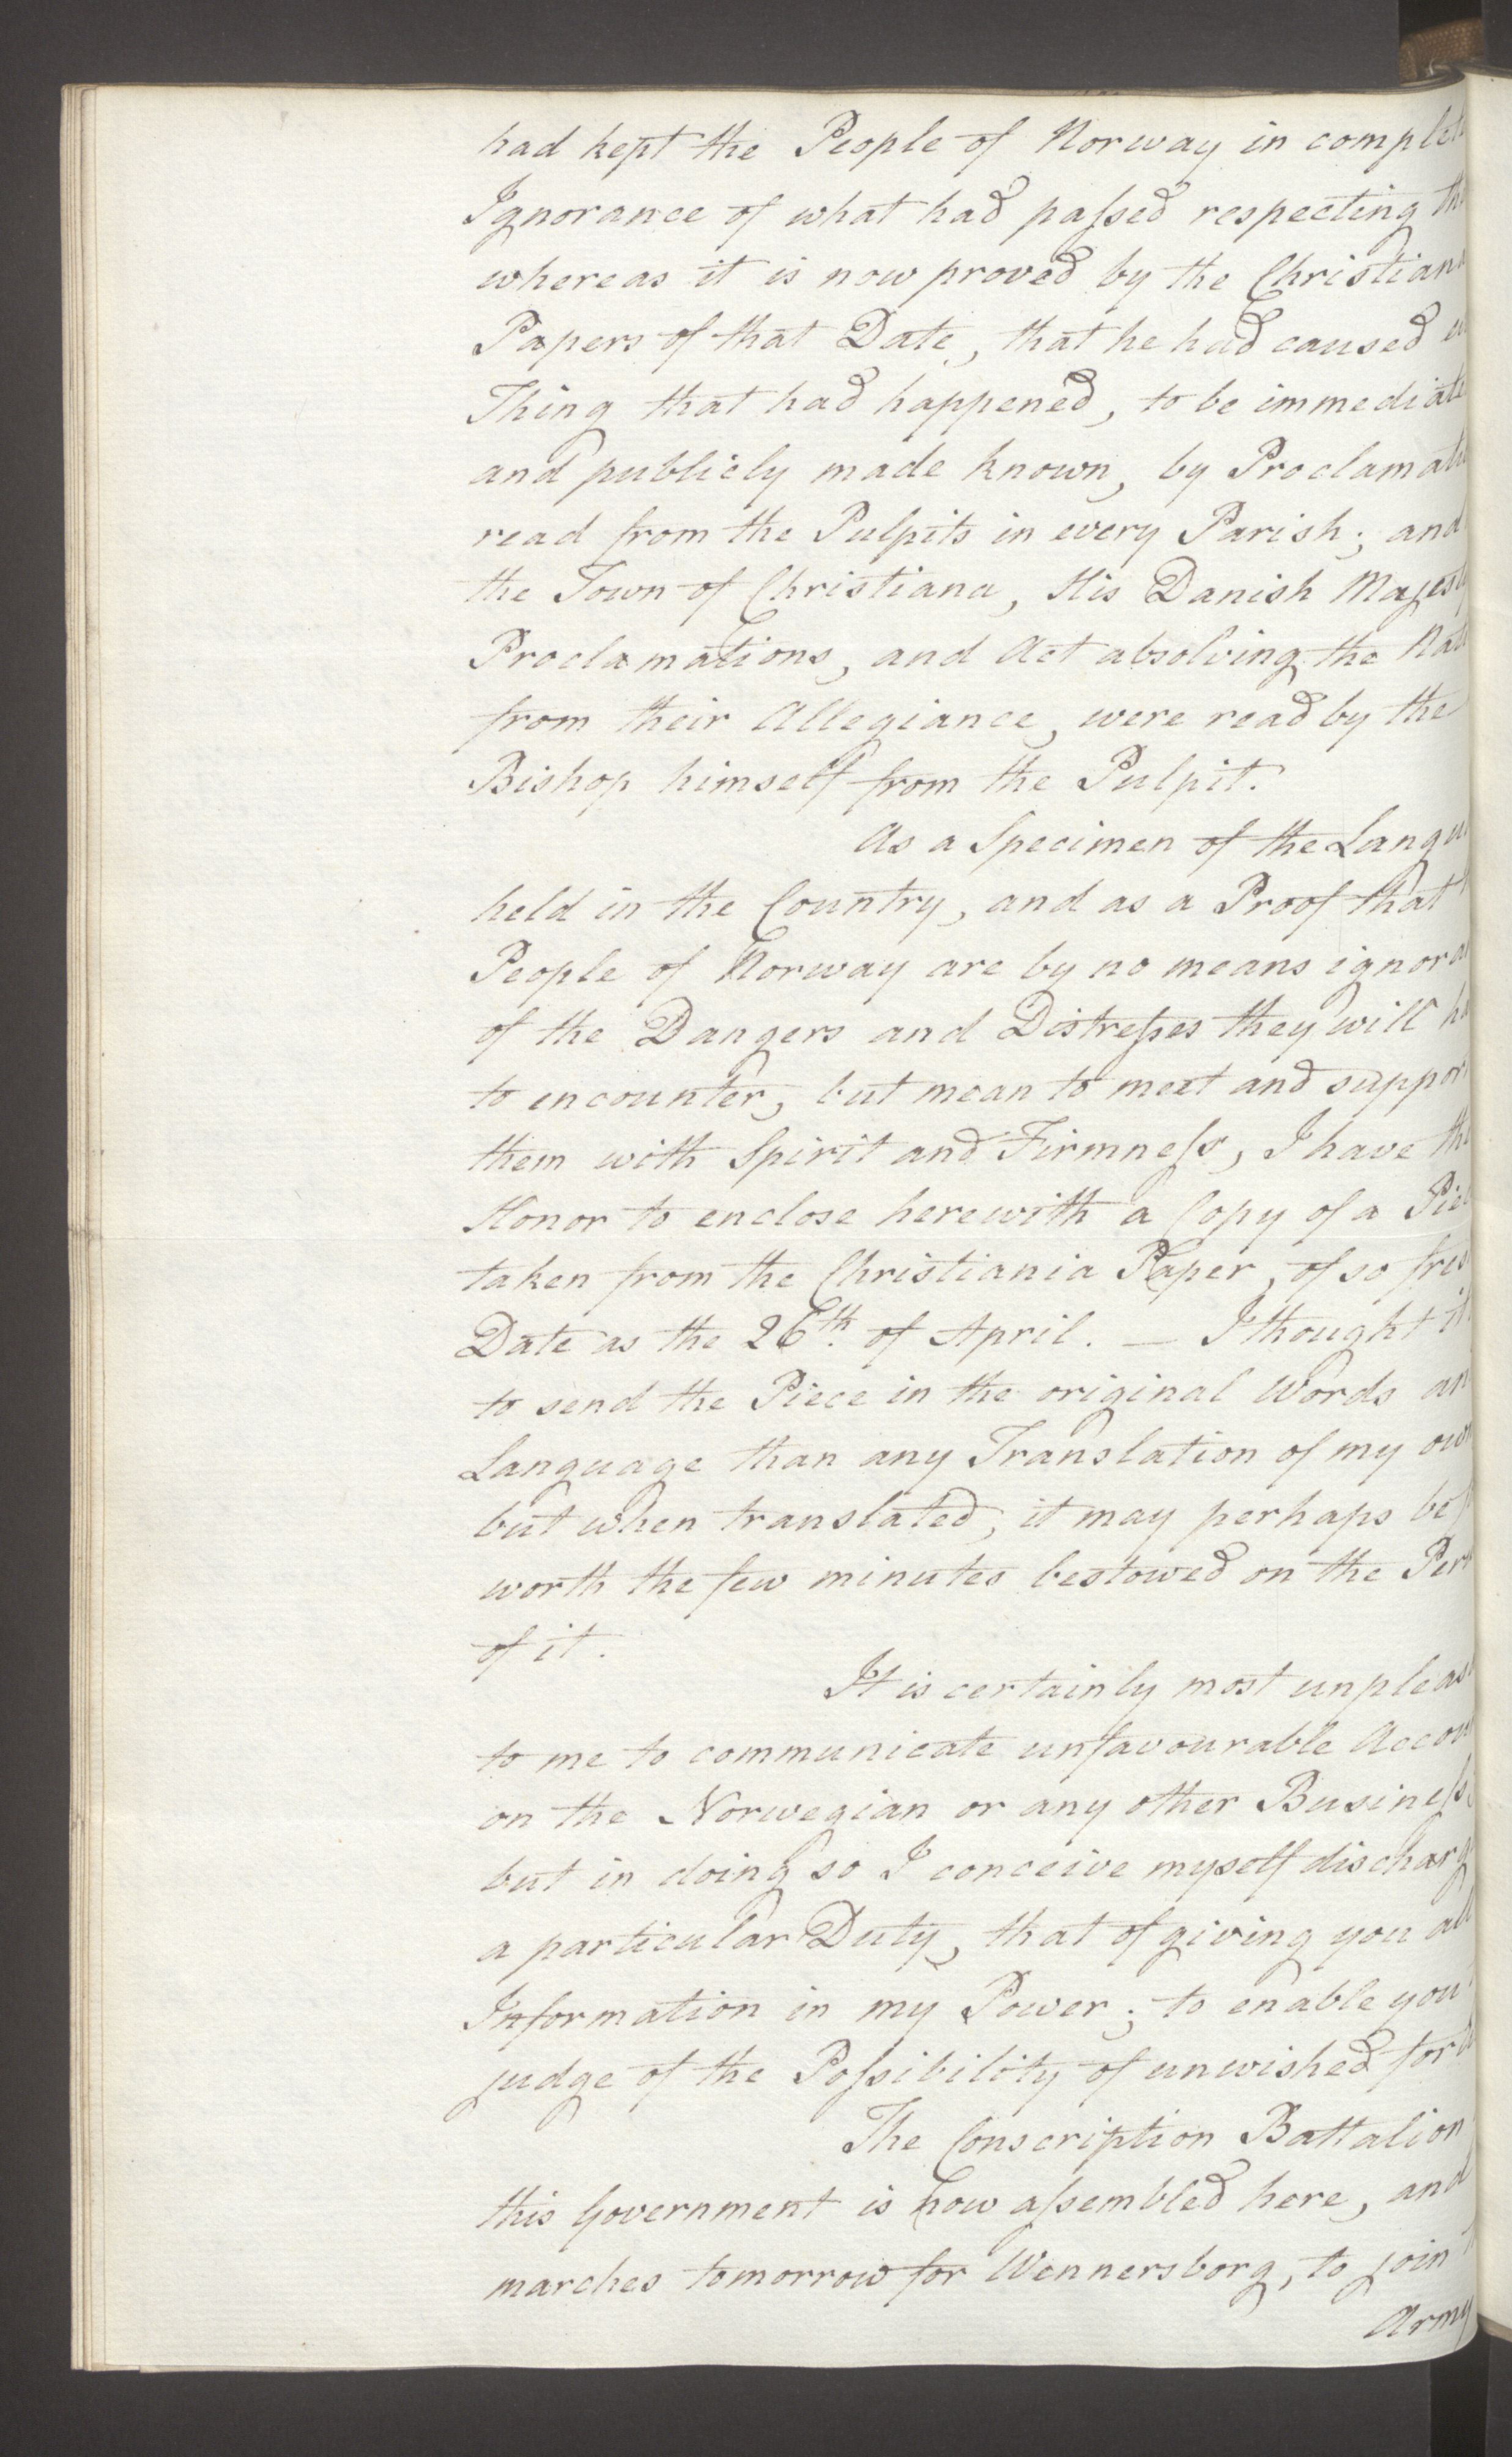 had kept the People of Norway in complet
Ignorance of what had paſsed respecting th
whereas it is now proved by the Christian
Papers of that Date, that he had caused
Thing that had happened, to be immediate
and publicly made known, by Proclamati
read from the Pulpits in every Parish; and
the Town of Christiana, His Danish Majest
Proclamations, and Act absolving the Nati
from their Allegiance, were read by the
Bishop himself from the Pulpit.
As a Specimen of the Langu
held in the Country, and as a Proof that
People of Norway are by no means ignora
of the Dangers and Distreſses they will ha
to encounter, but mean to meet and suppor
them with Spirit and Firmneſs, I have the
Honor to enclose herewith a Copy of a Pie
taken from the Christiania Paper, of so fres
Date as the 26th. of April. — I thought it
to send the Piece in the original Words an
Language than any Translation of my own
but when translated, it may perhaps be
worth the few minutes bestowed on the Per
of it.
It is certainly most unpleas
to me to communicate unfavourable Accou
on the Norwegian or any other Busineſs;
but in doing so I conceive myself discharg
a particular Duty, that of giving you all
Information in my Power; to enable you
judge of the Poſsibility of unwished for
The Conscription Battalion
this Government is now aſsembled here, and
marches tomorrow for Wennersborg, to join
Army